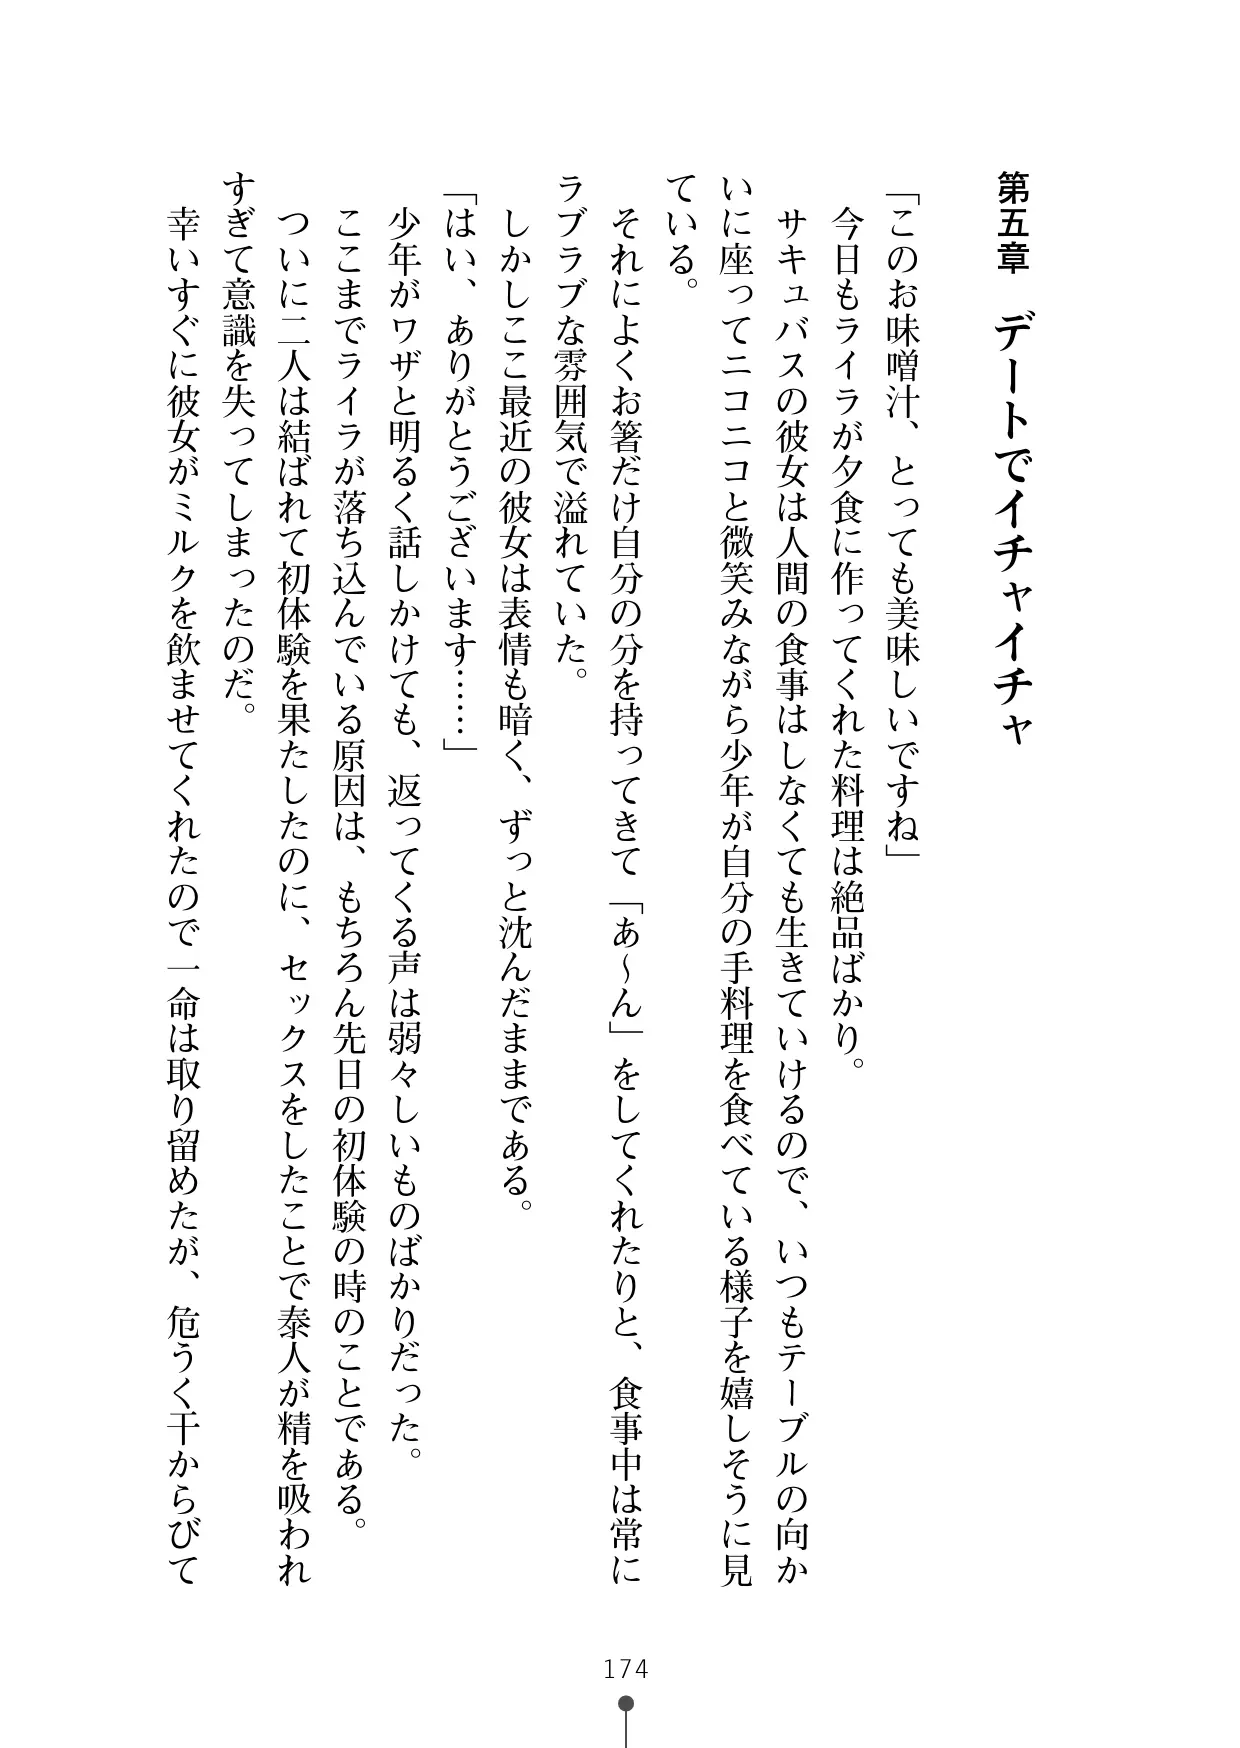 第五章　デートでイチャイチャ
「このお味噌汁、とっても美味しいですね」
今日もライラが夕食に作ってくれた料理は絶品ばかり。
サキュバスの彼女は人間の食事はしなくても生きていけるので、いつもテーブルの向か
いに座ってニコニコと微笑みながら少年が自分の手料理を食べている様子を嬉しそうに見
ている。
それによくお箸だけ自分の分を持ってきて「あ～ん」をしてくれたりと、食事中は常に
ラブラブな雰囲気で溢れていた。
しかしここ最近の彼女は表情も暗く、ずっと沈んだままである。
「はい、ありがとうございます……」
少年がワザと明るく話しかけても、返ってくる声は弱々しいものばかりだった。
ここまでライラが落ち込んでいる原因は、もちろん先日の初体験の時のことである。
ついに二人は結ばれて初体験を果たしたのに、セックスをしたことで泰人が精を吸われ
すぎて意識を失ってしまったのだ。
幸いすぐに彼女がミルクを飲ませてくれたので一命は取り留めたが、危うく干からびて
174